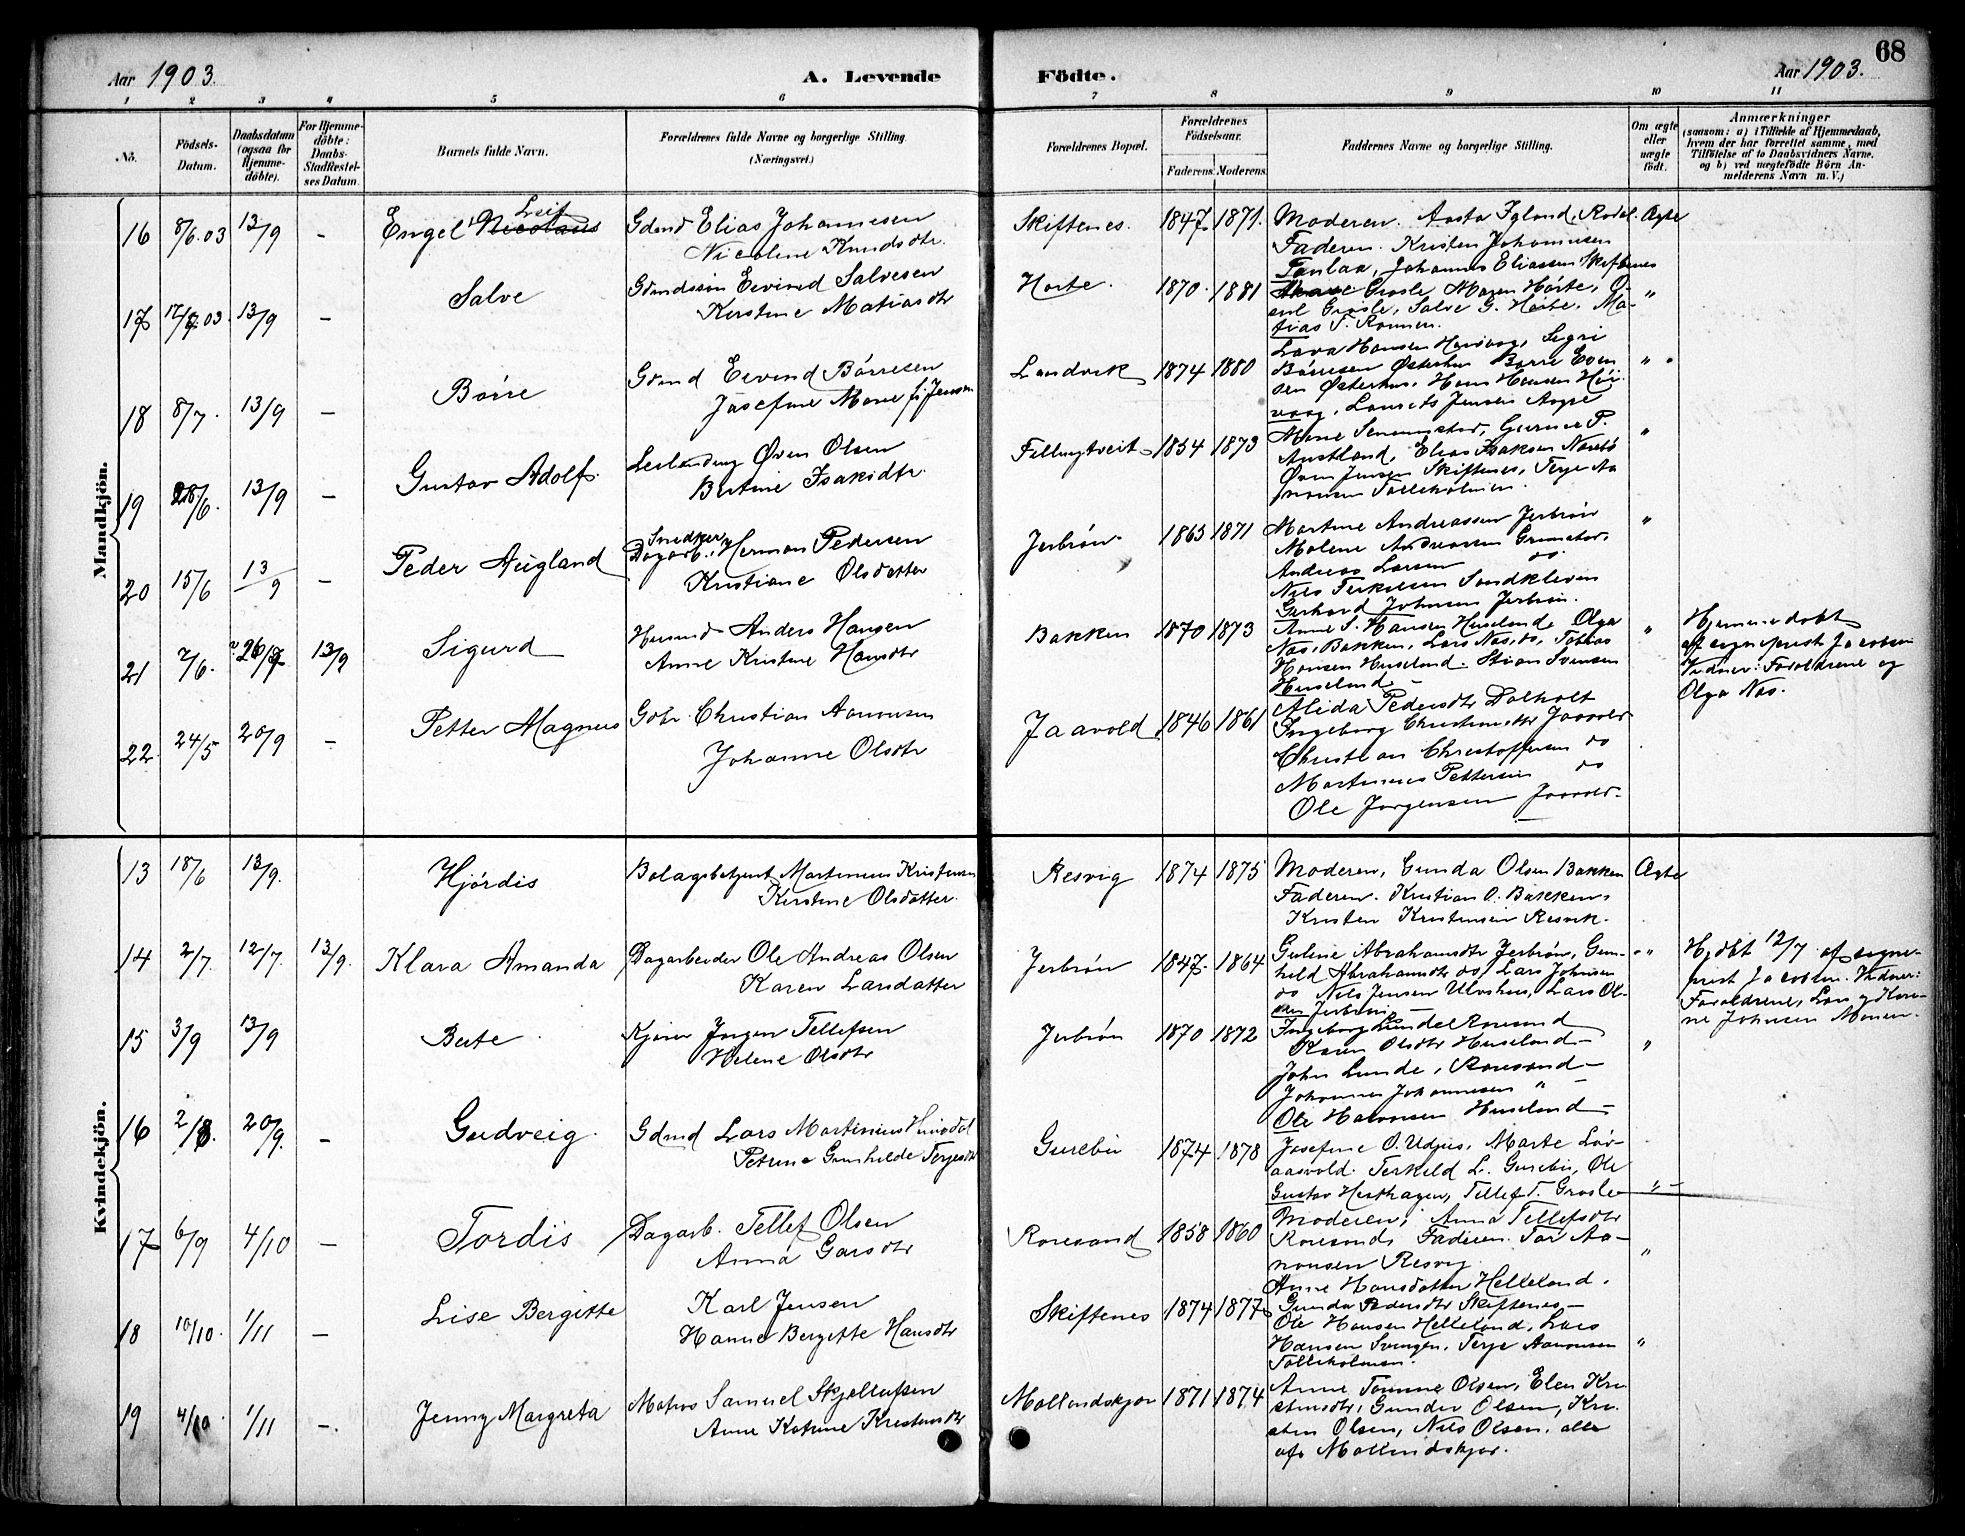 68
Aar 1903.
A. Levende
Födte.
Aar 1903.
1 2 3 4 5 6 7 8 9 10 11
No.
Födsels-Datum.
Daabsdatum (ogsaa for Hjemme-döbte).
For Hjemme-döbte: Daabs-Stadfæstel-ses Datum.
Barnets fulde Navn.
Forældrenes fulde Navne og borgerlige Stilling.
(Næringsvei.)
Forældrenes Bopæl.
Forældrenes Födselsaar.
Faderens. Moderens.
Faddernes Navne og borgerlige Stilling.
Om ægte eller uægte födt.
Anmærkninger
(saasom: a) i Tilfælde af Hjemmedaab,
hvem der har forrettet samme, med
Tilföielse af to Daabsvidners Navne.
og b) ved uægtefödte Börn An-
melderens Navn m. V.)
Mandkjön.
16 8/6.03 13/9 - Engel Nicolaus Leif
Gdmd Elias Johannesen
Nicoline Knudsdtr.
Skiftenes. 1847 1871.
Moderen. Aasta Igland,
Faderen. Kristen Johannesen
Johannes Eliassen Skiftenes
Ægte
17 13/9 - Salve
Eivind Salvesen
Kirstine Matiasdtr
Hørte. 1870 1881
Grosle, Maren Hørte,
Grosle, Salve G. Hørte, Ma-
tias T.
"
18 8/7. 13/9 - Børre
Gdmd Eivind Børresen
Josefine Marie
Landvik 1874 1880
Børresen Østerhus Børre Even
sen Østerhus, Hans Hansen
Laurits Jensen
" "
19 28/6. 13/9 - Gustav Adolf.
Øven Olsen
Bertine Isaksdtr.
1854 1873
Gurine P.
Austland, Elias Isaksen
Øven Jensen Skiftenes, Terje Aa
nonsen Tolleholmen.
"
20 15/6 13/9 - Peder Augland
Snedker
Dagarb. Herman Pedersen
Kristiane Olsdatter
Jerbrøn 1863 1871
Martine Andreassen Jerbrøn
Malene Andreassen Grimstad,
Andreas Larsen do.
Nils Terkelsen Sandkleven
Gerhard Johnsen Jerbrøn.
"
21 7/6. 13/9 Sigurd
Husmd Anders Hansen
Anne Kristine Hansdtr
Bakken 1870 1873
Anne S. Hansen Huseland, Olga
Næs, Bakken, Lars Næs, do, Tobias
Hansen Huseland. Stian Svensen
Huseland -
"
Hjemmedøbt
af sogneprest Jacobsen
Vidner: Forældrene og
Olga Næs.
22. 24/5 20/9 - Petter Magnus
Gbr. Christian Aanonsen
Johanne Olsdtr
Jaavold 1846 1861
Alida Pedersdtr Dalholt
Ingeborg Christensdtr Jaavold
Christian Christoffersen do
Martinius Pettersen do
Ole Jørgensen Jaavold.
Kvindekjön.
13 18/6 13/9. Hjørdis
Martinius Kristensen
Kirstine Olsdatter.
Resvig 1874 1875
Moderen, Gunda Olsen Bakken
Faderen. Kristian O. Bakken,
Kristen Kristensen Resvik.
Ægte
14 2/7. 12/7. 13/9. Klara Amanda
Dagarbeider Ole Andreas Olsen
Karen Larsdatter
Jerbrøn 1847 1864
Guline Abrahamsdtr Jerbrøn, Gun-
hild Abrahamsdtr do, Lars Johnsen
do Nils Jensen Ulvehus, Lars Ol-
sen Jerbrøn -
"
Hjdøbt 12/7. af sogne-
prest Jacobsen. Vidner:
Forældrene, Lars og Kare-
ne Johnsen Monen.
15 3/9 13/9 Berte.
Kjører Jørgen Tellefsen
Helene Olsdtr
Jerbrøn 1870 1872
Ingeborg Lunde Roresand
Karen Olsdtr Huseland -
John Lunde, Roresand -
Johannes Johannesen " -
Ole Halvorsen Huseland -
"
16 2/8. 20/9. - Gudveig.
Gdmd Lars Martinius
Petrine Gunhilde Terjesdtr
Gurebu 1874 1878
Josefine O. Udjus, Marte Løv-
aasvold. Terkild L. Gurebu, Ole
Gustav Hesthagen, Tellef T. Grosle
" -
17 6/9 4/10 - Tordis
Dagarb. Tellef Olsen
Anna Garsdtr
Roresand 1858 1860
Moderen, Anna Tellefsdtr
Roresand, Faderen. Tor Aa-
nonsen Resvig.
"
18 10/10. 1/11 - Lise Bergitte
Karl Jensen
Hanne Bergitte Hansdtr
Skiftenes 1874 1877
Anne Hansdatter Helleland.
Gunda Pedersdtr Skiftenes -
Ole Hansen Helleland, Lars
Hansen Svingen, Terje Aanonsen
Tolleholmen.
"
19 4/10 1/11 -. Jenny Margreta
Matros Samuel Skjellufsen
Anne Katrine Kristensdtr
Mollandskjær 1871 1874
Anne Tomine Olsen, Elen Kri
stensdtr, Gunder Olsen, Kri-
sten Olsen, Nils Olsen, alle
af Mollandskjær.